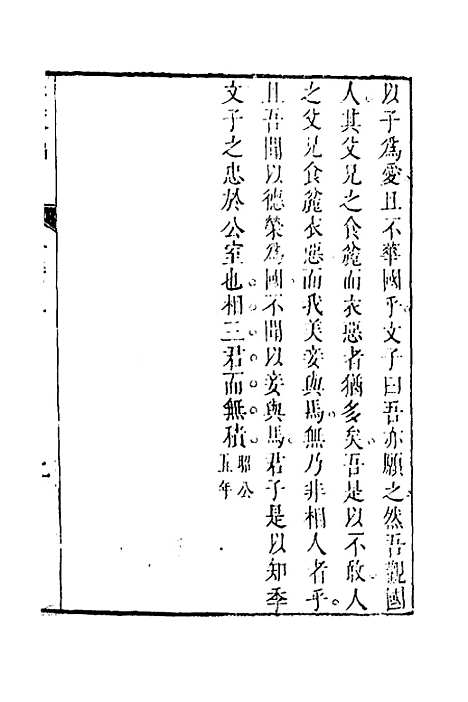 以子爲愛且不華國乎文子曰吾亦願之然吾觀國
人其父兄之食麄而衣惡者猶多矣吾是以不敢人
之父兄食麄衣惡而我美妾與馬無乃非相人者乎
且吾聞以德榮爲國不聞以妾與馬君子是以知季
文子之忠於公室也相三君而無積
昭公
五年